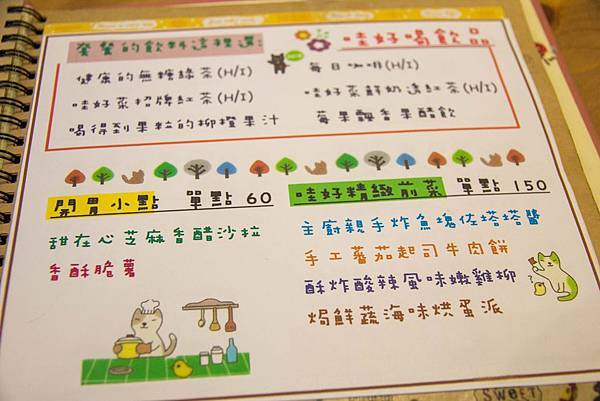 套餐的飲料這裡選:
哇好喝飲品
健康的無糖綠茶(H/I)
每日咖啡(H/I)
哇好菜招牌紅茶(H/I)
哇好菜鮮奶濃紅茶(H/I)
喝得到果粒的柳橙果汁
莓果飄香果醋飲
開胃小點 單點 60
哇好精緻前菜 單點 150
甜在心芝麻香醋沙拉
香酥脆薯
主廚親手炸魚塊佐塔塔醬
手工蕃茄起司牛肉餅
酥炸酸辣風味嫩雞柳
焗鮮蔬海味烘蛋派
SWEET